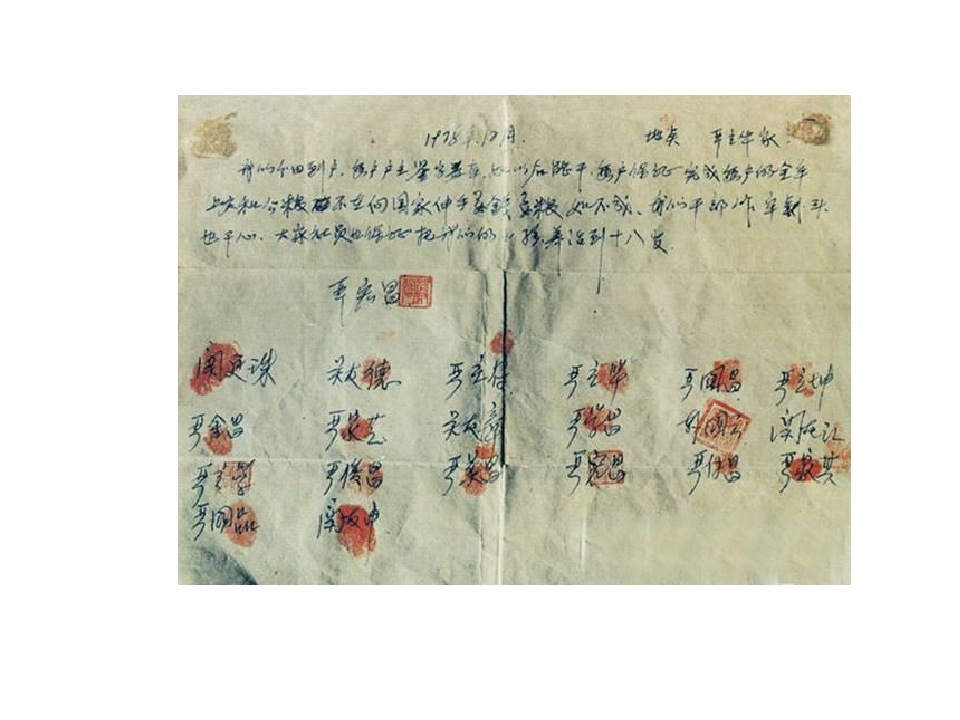 1978年12月. 地点 严立华家
我们分田到户,每户户主签字盖章,如以后能干,每户保证完成每户的全年
上交和公粮,不在向国家伸手要钱要粮,如不成,我们干部作牢刹头
也干心,大家社员也保证把我们的小孩养活到十八岁
严宏昌
关廷珠 关友德 严立符 严立华 严国昌 严立坤
严金昌 严家芝 关友章 严学昌 韩国云 关友江
严立学 严俊昌 严美昌 严宏昌 严付昌 严家其
严国品 关友申